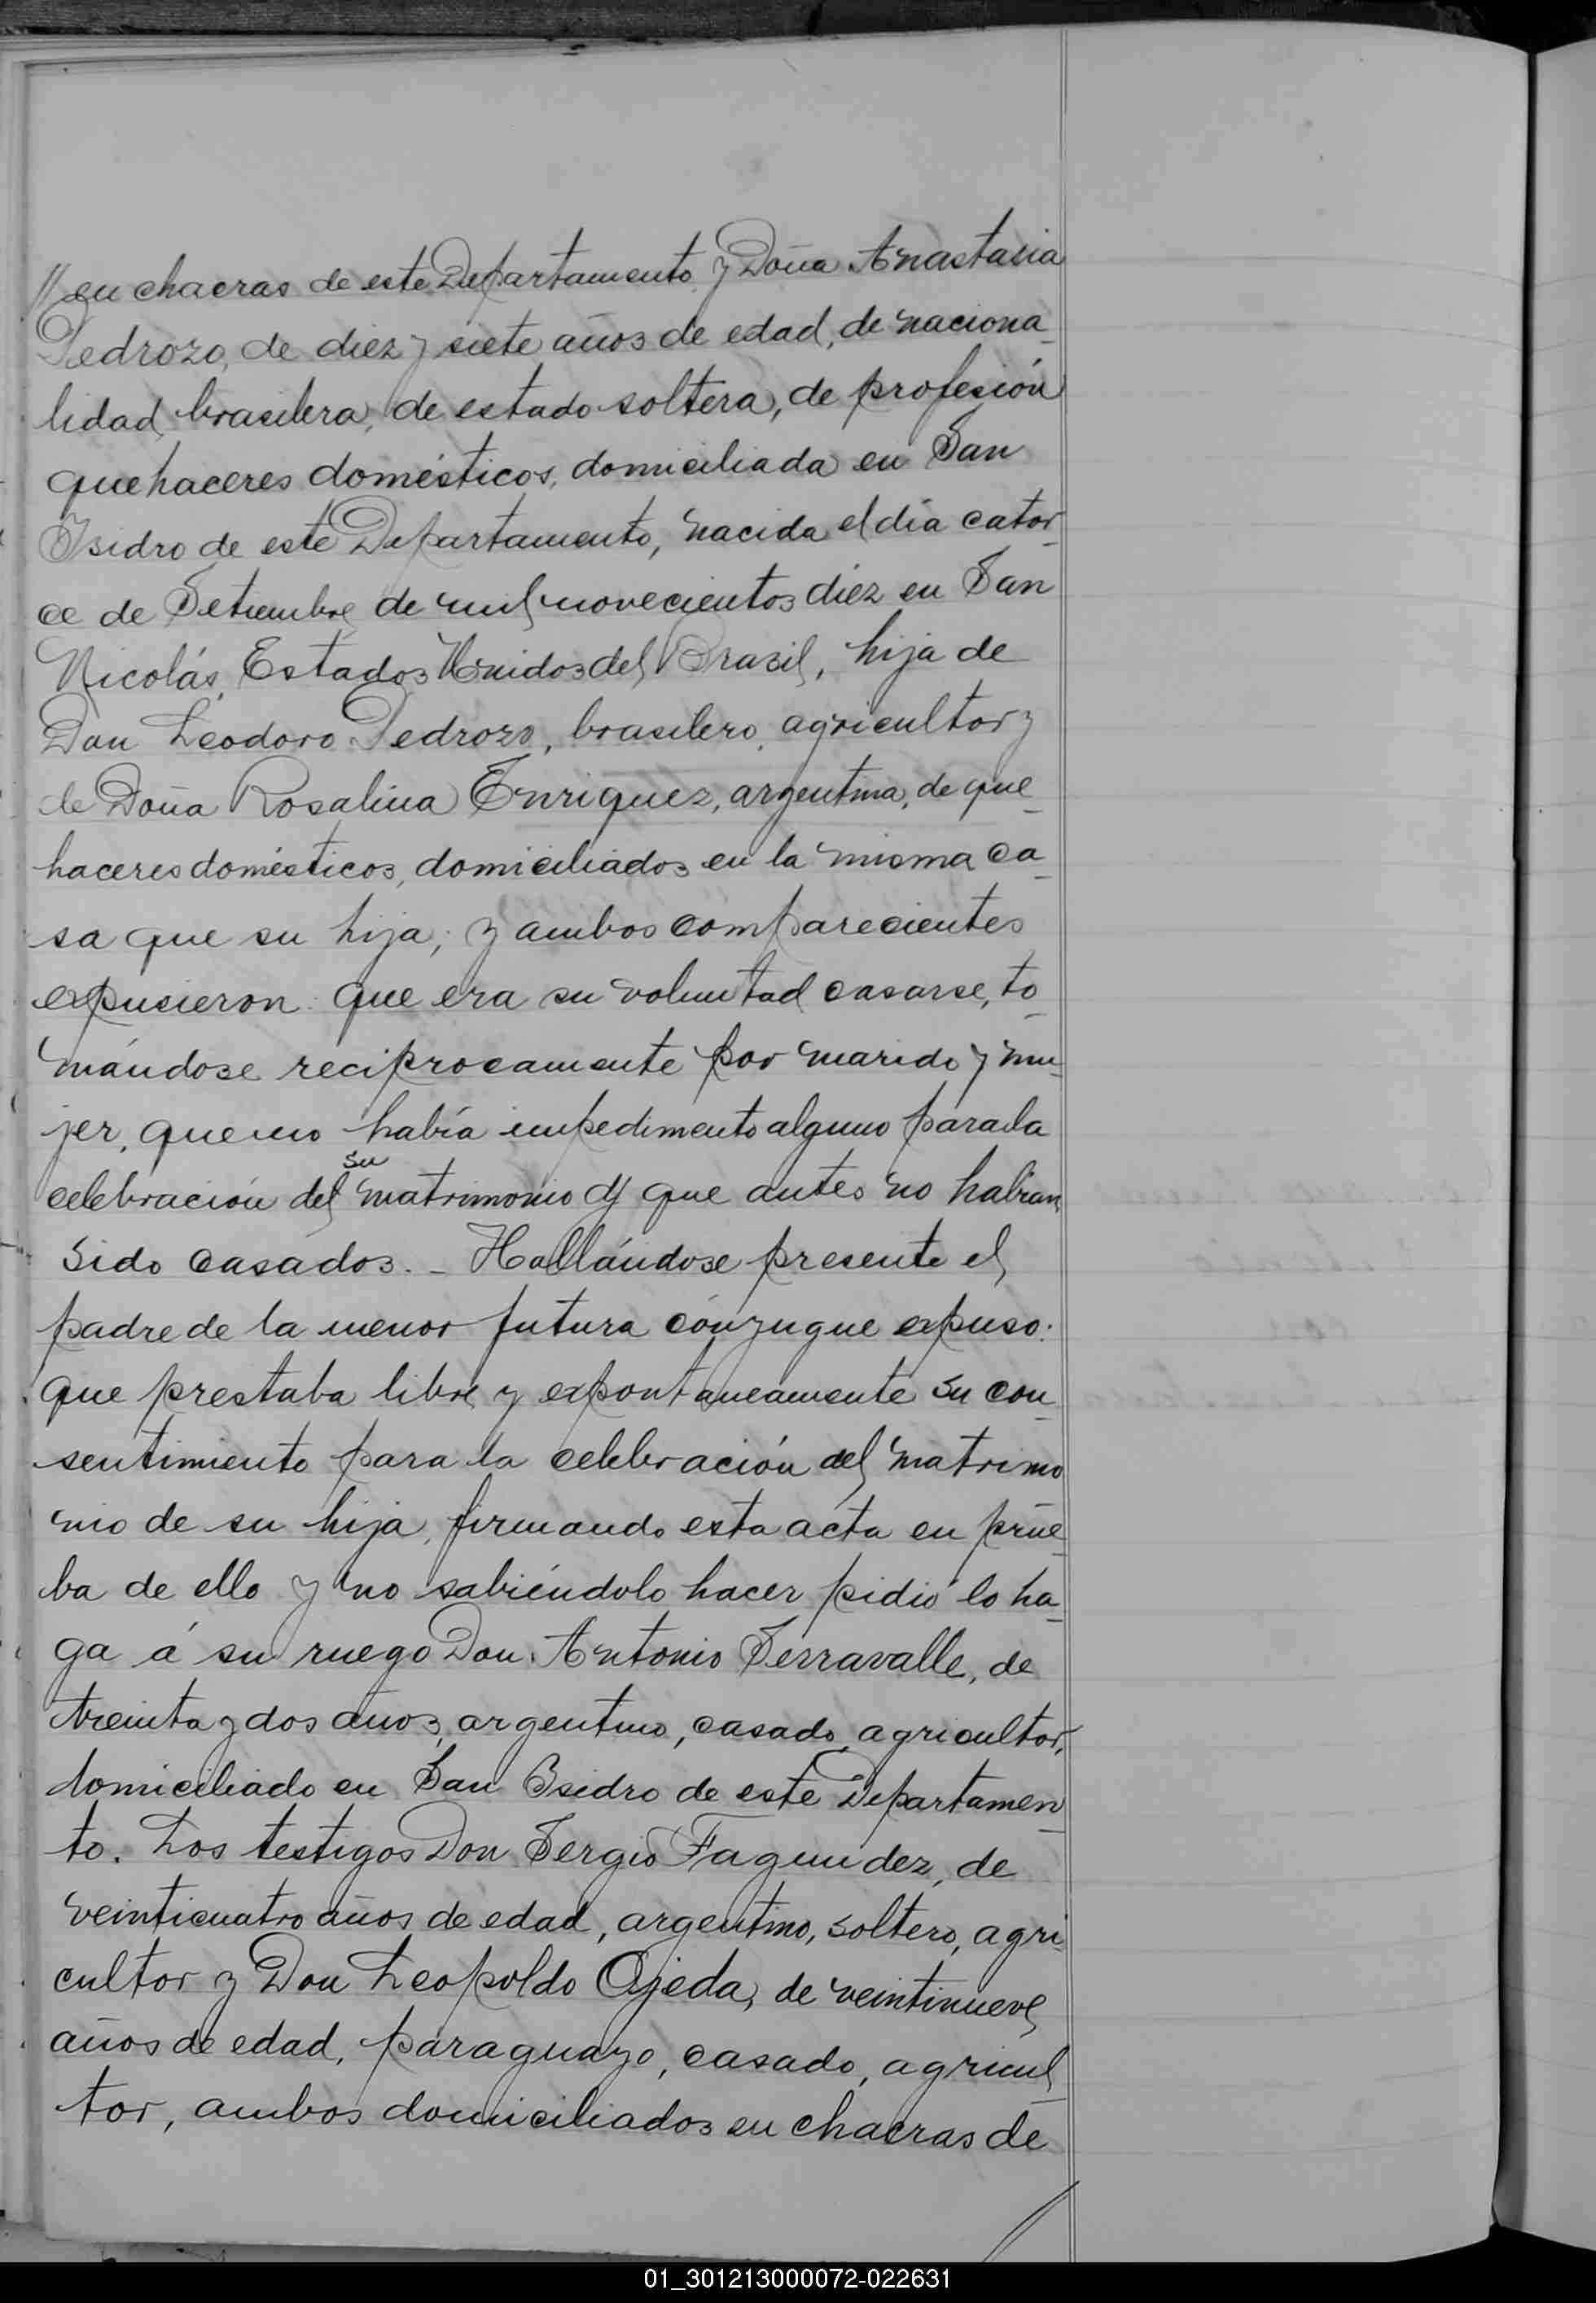 // en chacras de este Departamento y Doña Anastasia
Pedrozo, de diez y siete años de edad, de naciona-
lidad brasilera, de estado soltera, de profesión
quehaceres domésticos, domiciliada en San
Isidro de este Departamento, nacida el día cator-
ce de Setiembre de mil novecientos diez en San
Nicolás, Estados Unidos del Brasil, hija de
Don Leodoro Pedrozo, brasilero, agricultor y
de Doña Rosalina Enriquez, argentina, de que-
haceres domésticos, domiciliados en la misma ca-
sa que su hija; y ambos comparecientes
expusieron: que era su voluntad casarse, to-
mándose reciprocamente por marido y mu-
jer, que no había impedimento alguno para la
su
celebración del matrimonio y que antes no habian
sido casados. - Hallándose presente el
padre de la menor futura cónyugue expuso:
que prestaba libre y expontaneamente su con-
sentimiento para la celebración del matrimo
nio de su hija, firmando esta acta en prue-
ba de ello y no sabiéndolo hacer pidió lo ha-
ga á su ruego Don Antonio Serravalle, de
treinta y dos años, argentino, casado, agricultor,
domiciliado en San Isidro de este Departamen-
to. Los testigos Don Sergio Fagundez, de
veinticuatro años de edad, argentino, soltero, agri-
cultor y Don Leopoldo Ojeda, de veintinueve
años de edad, paraguayo, casado, agricul-
tor, ambos domiciliados en chacras de
/
01_301213000072-022631